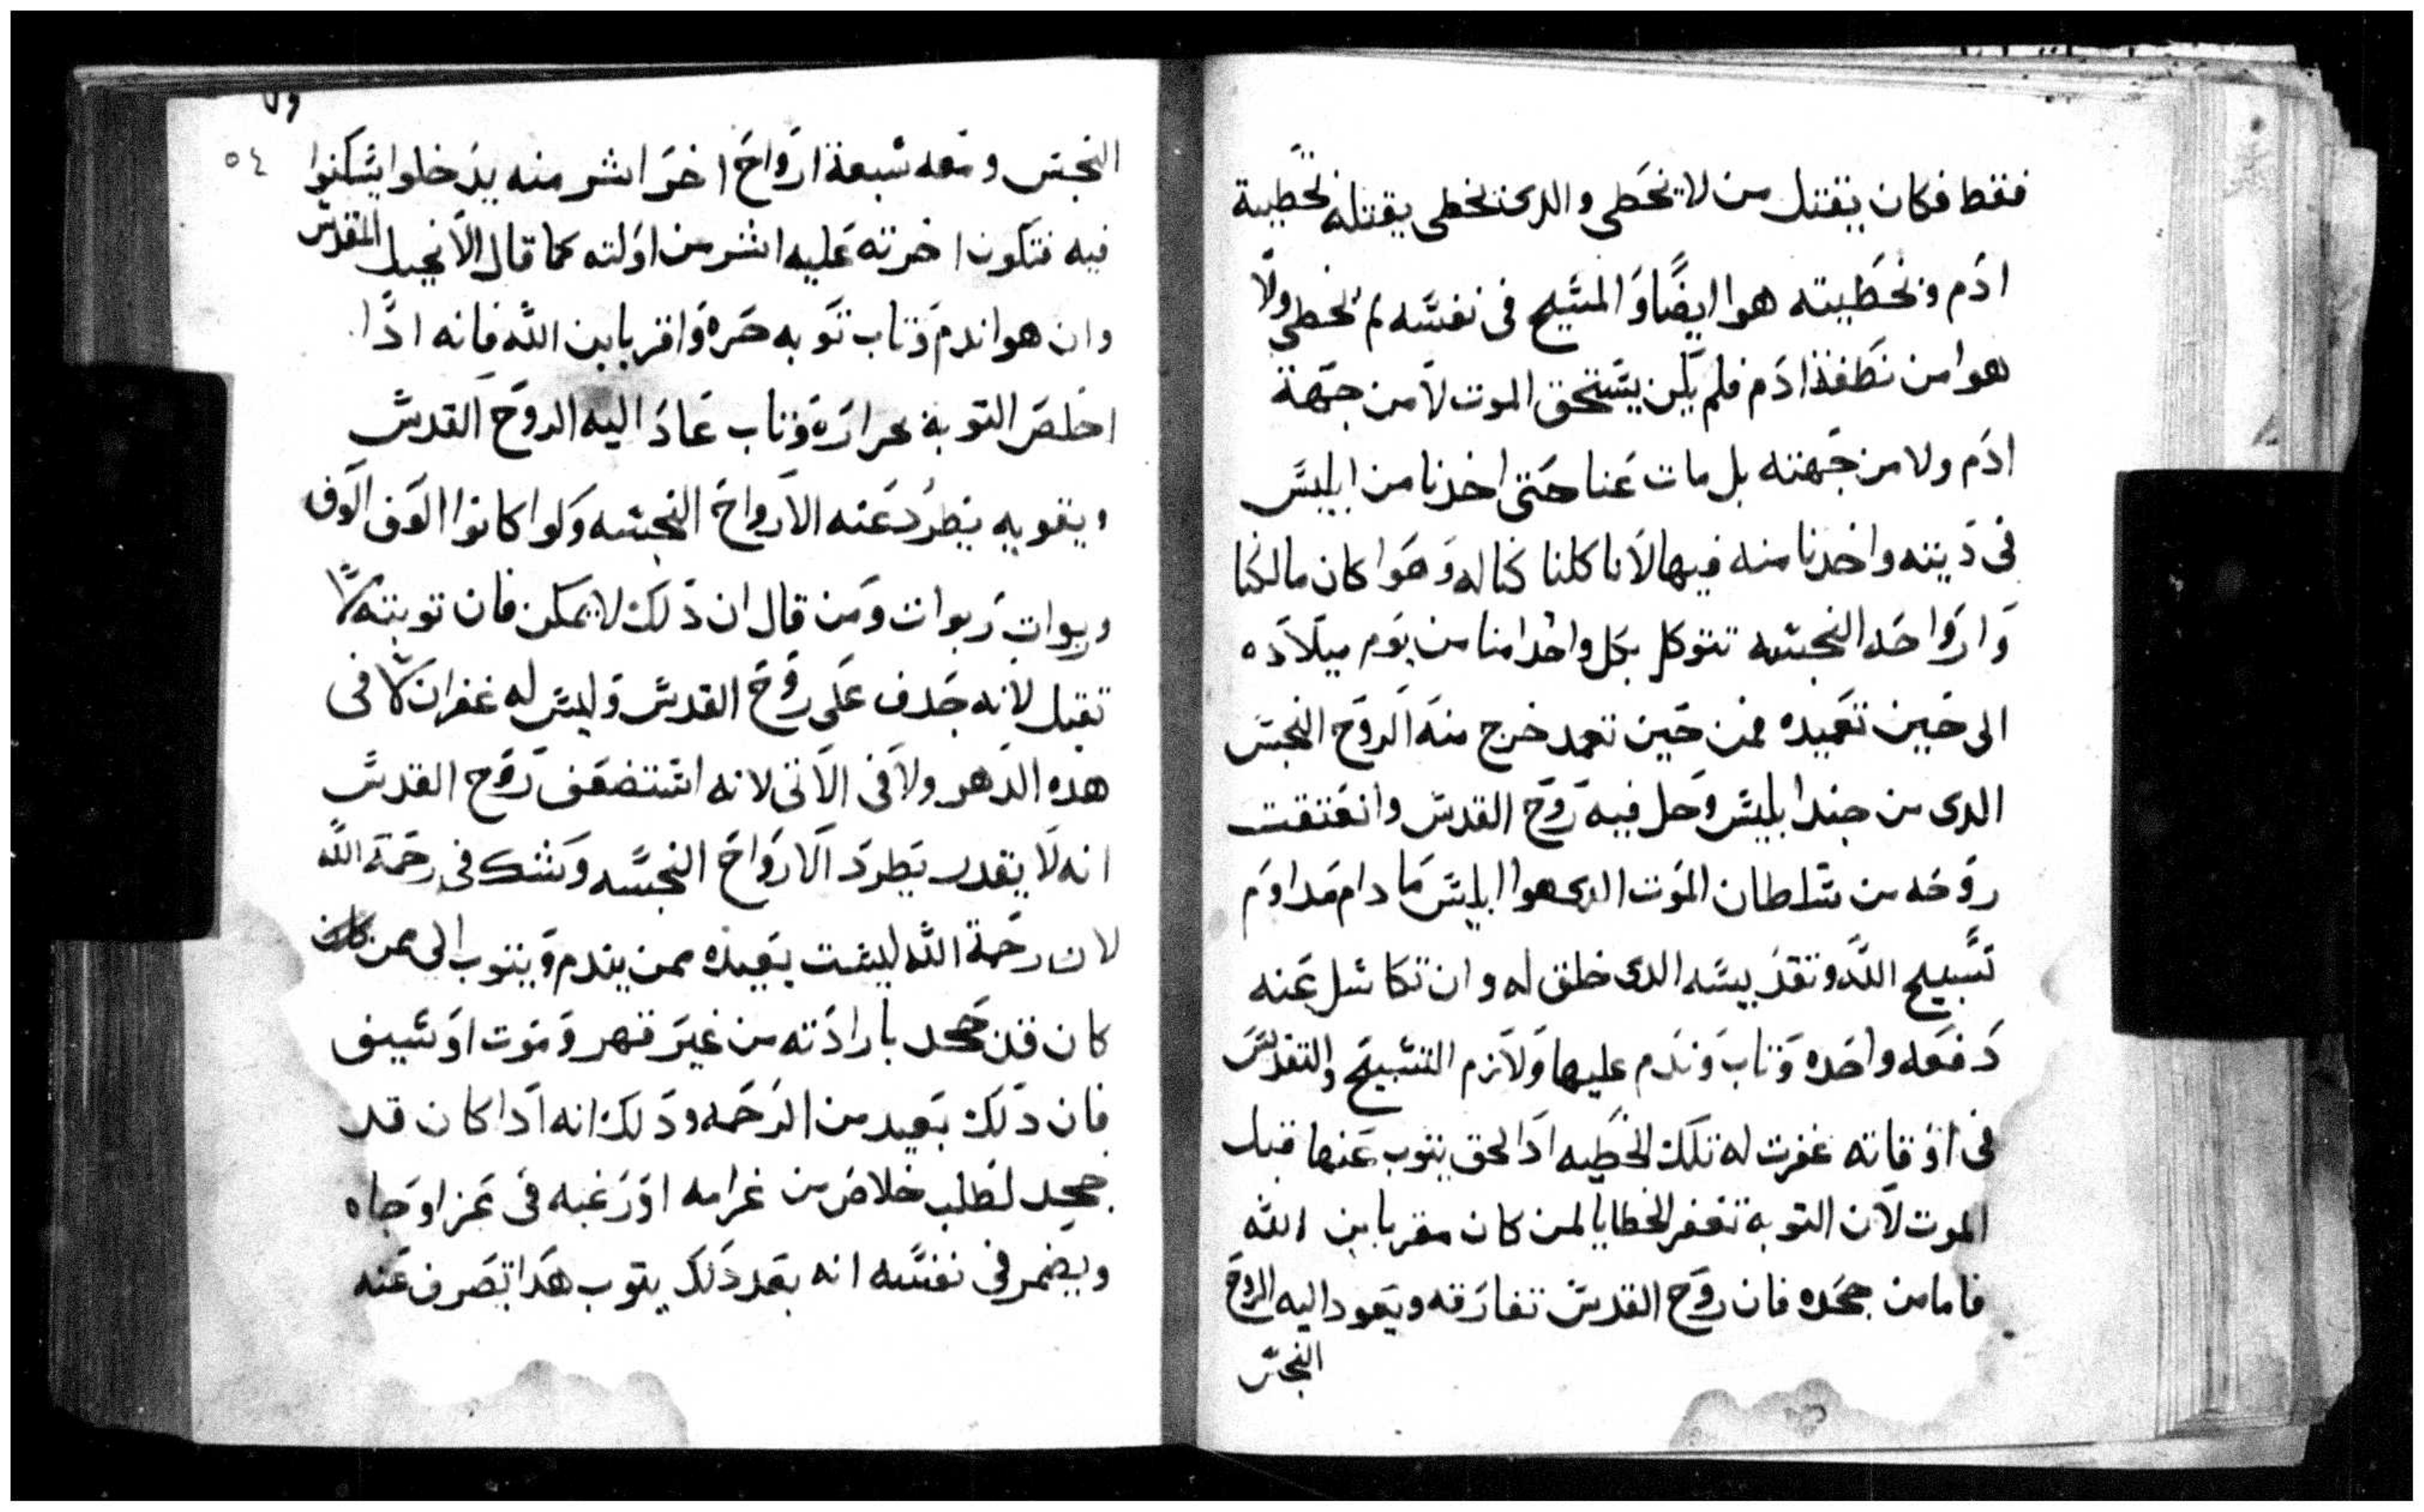 فقط فكان يقتل من لا يخطى والدى يخطى يقتله بخطيية
ادم وبخطيته هوا ايضًا والمسيح فى نفسه لم يخطى ولا
هوا من نطفة ادم فلم يكن يستحق الموت لا من جهة
ادم ولا من جهته بل مات عنا حتى اخدنا من ابليس
فى ديته واخدنا منه فيها لانا كلنا كنا له وهوا كان مالكنا
وارواحه النجسه تتوكل بكل واحد امنا من يوم ميلاده
الى حين تعميده فمن حين تعمد خرج منه الروح النجس
الدى من جند ابليس وحل فيه روح القدس وانعتقت
روحه من سلطان الموت الدى هوا ابليس ما دام مداوم
تسبيح الله وتقديسه الدى خلق له وان تكاسل عنه
دفعه واحده وتاب وندم عليها ولازم التسبيح والتقديس
فى اوقاته غفرت له تلك الخطيه ادا لحق يتوب عنها قبل
الموت لان التوبة تغفر الخطايا لمن كان مقر بابن الله
فاما من جحده فان روح القدس تفارقه ويعود اليه الروح
النجس
٥٤
النجس ومعه سبعة ارواح اخر اشر منه يدخلوا يسكنوا
فيه فتكون اخرته عليه اشر من اولته كما قال الانجيل المقدس
وان هوا ندم وتاب توبه حره واقر بابن الله فانه ادًا
اخلص التوبة بحراره وتاب عاد اليه الروح القدس
ويقويه يطرد عنه الارواح النجسه ولوا كانوا الوف الوف
وربوات ربوات ومن قال ان دلك لا يمكن فان توبته لا
تقبل لانه جدف على روح القدس وليس له غفران لا فى
هده الدهر ولا فى الاتى لانه استضعف روح القدس
انه لا يقدر يطرد الارواح النجسه وشك فى رحمة الله
لان رحمة الله ليست بعيده ممن يندم ويتوب الى من
كان قد جحد بارادته من غير قهر وموت او سيف
فان دلك بعيد من الرحمه ودلك انه ادا كان قد
جحد لطلب خلاص من غرامه او رغبه فى عز او جاه
ويضمر فى نفسه انه بعد دلك يتوب هدا تصرف عنه